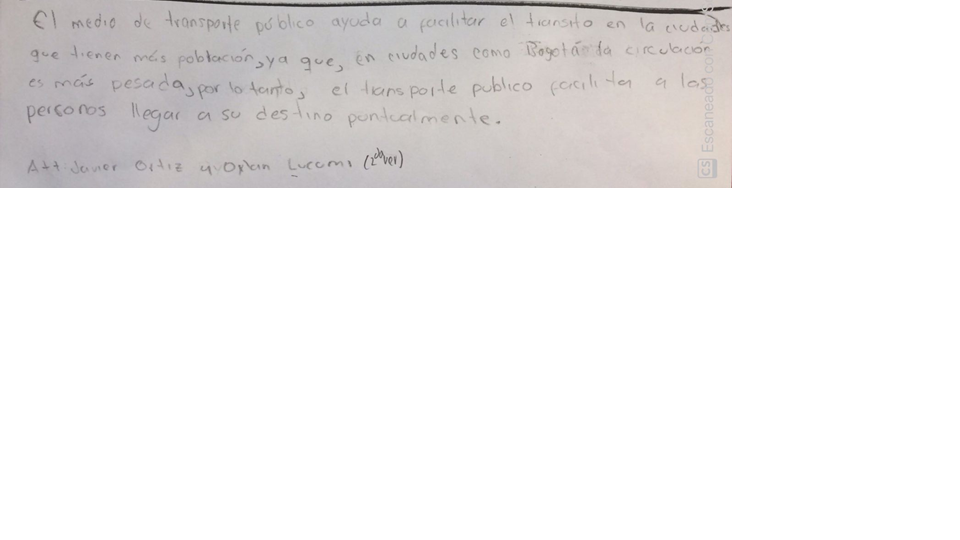 El medio de transporte público ayuda a facilitar el transito en la ciudades
que tienen más población, ya que, en ciudades como Bogotá la circulación
es más pesada, por lo tanto, el transporte publico facilita a las
personas llegar a su destino puntualmente.
Att: Janer Ortiz y Lucumi
CS Escaneado con